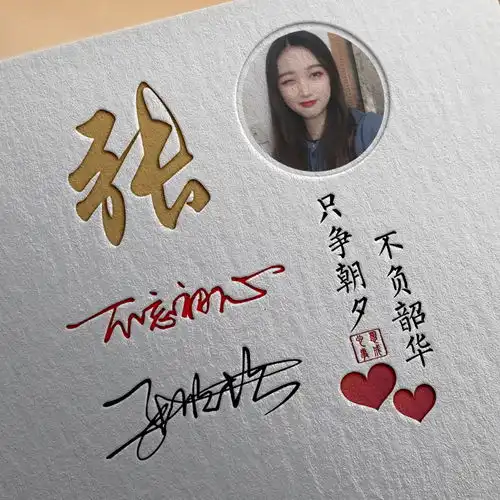 张
不忘初心
只争朝夕
不负韶华